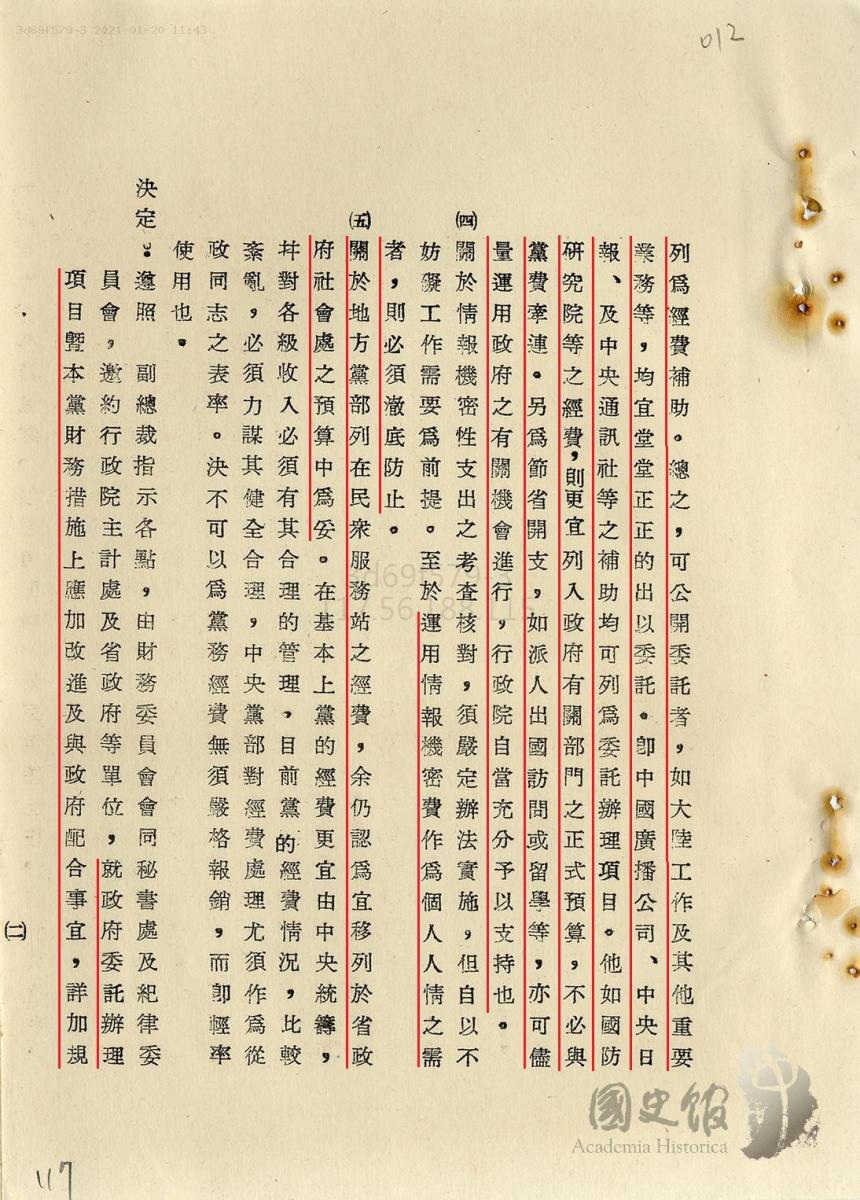 3d69f579-3 2021-01-20 11:43
012
列爲經費補助。總之，可公開委託者，如大陸工作及其他重要
業務等，均宜堂堂正正的出以委託。卽中國廣播公司、中央日
報、及中央通訊社等之補助均可列爲委託辦理項目。他如國防
研究院等之經費，則更宜列入政府有關部門之正式預算，不必與
黨費牽連。另爲節省開支，如派人出國訪問或留學等，亦可儘
量運用政府之有關機會進行，行政院自當充分予以支持也。
㈣關於情報機密性支出之考查核對，須嚴定辦法實施，但自以不
妨礙工作需要爲前提。至於運用情報機密費作爲個人人情之需
者，則必須澈底防止。
㈤關於地方黨部列在民衆服務站之經費，余仍認爲宜移列於省政
府社會處之預算中爲妥。在基本上黨的經費更宜由中央統籌，
幷對各級收入必須有其合理的管理，目前黨的經費情況，比較
紊亂，必須力謀其健全合理，中央黨部對經費處理尤須作爲從
政同志之表率。決不可以爲黨務經費無須嚴格報銷，而卽輕率
使用也。
決定：遵照　副總裁指示各點，由財務委員會會同秘書處及紀律委
員會，邀約行政院主計處及省政府等單位，就政府委託辦理
項目暨本黨財務措施上應加改進及與政府配合事宜，詳加規
㈡
117
國史館
Academia Historica